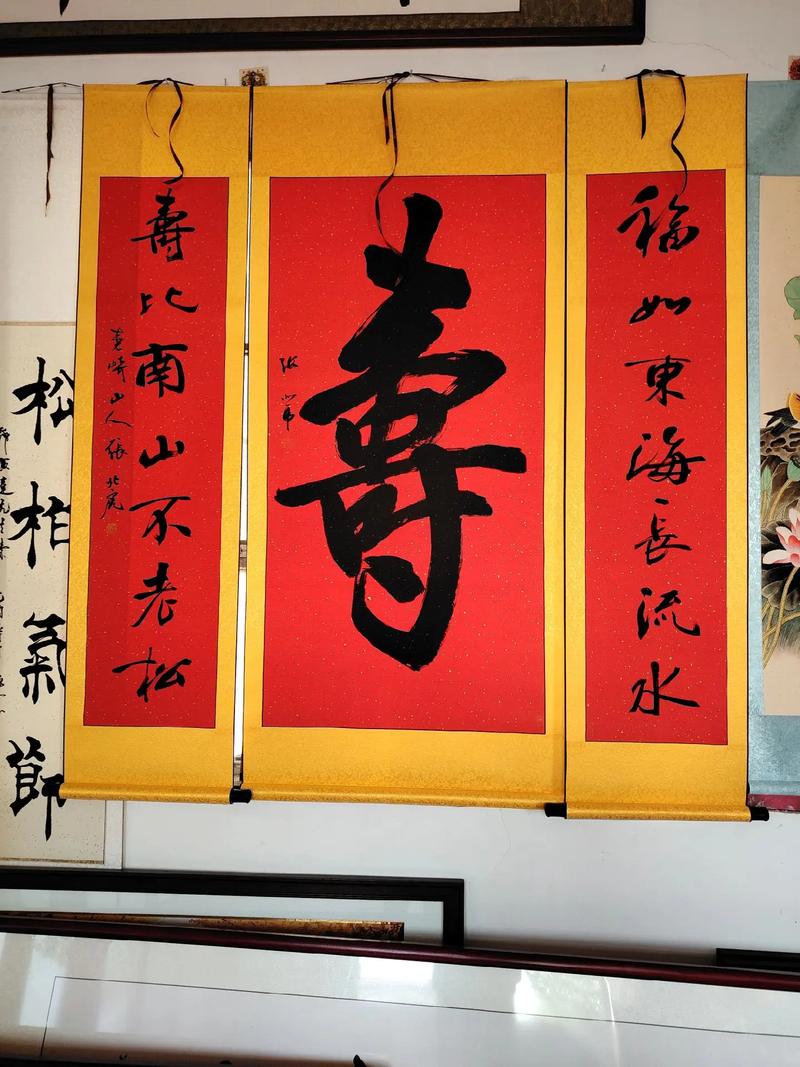 福如東海長流水
壽
張
壽比南山不老松
山人張
松柏氣節